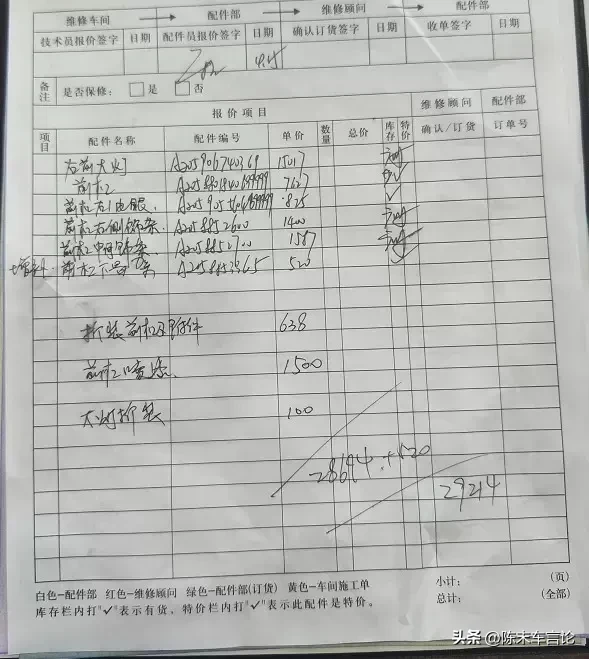 维修车间 → 配件部 → 维修顾问 → 配件部
技术员报价签字 日期 配件员报价签字 日期 确认订货签字 日期 收单签字 日期
4.15
备注 是否保修： □是 □否
报价项目 维修顾问 配件部
项目 配件名称 配件编号 单价 数量 总价 库存 特价 确认/订货 订单号
左前大灯 A2059067403 69 15017
前杠 7627 ✓
825 ✓
前杠右侧饰条 A2058852600 1400
前杠中间饰条 A2058852700 1587
增补 前杠下导条 A2058853365 520
拆装前杠及附件 638
前杠喷漆 1500
大灯拆装 100
28694 + 520
29214
白色—配件部 红色—维修顾问 绿色—配件部(订货) 黄色—车间施工单 小计： (页)
库存栏内打"✓"表示有货，特价栏内打"✓"表示此配件是特价。 总计： (全部)
头条 @陈未车言论